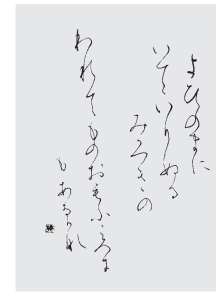 よひのまに
いてゝいりぬる
みかつきの
われてものおもふころに
もあるかな